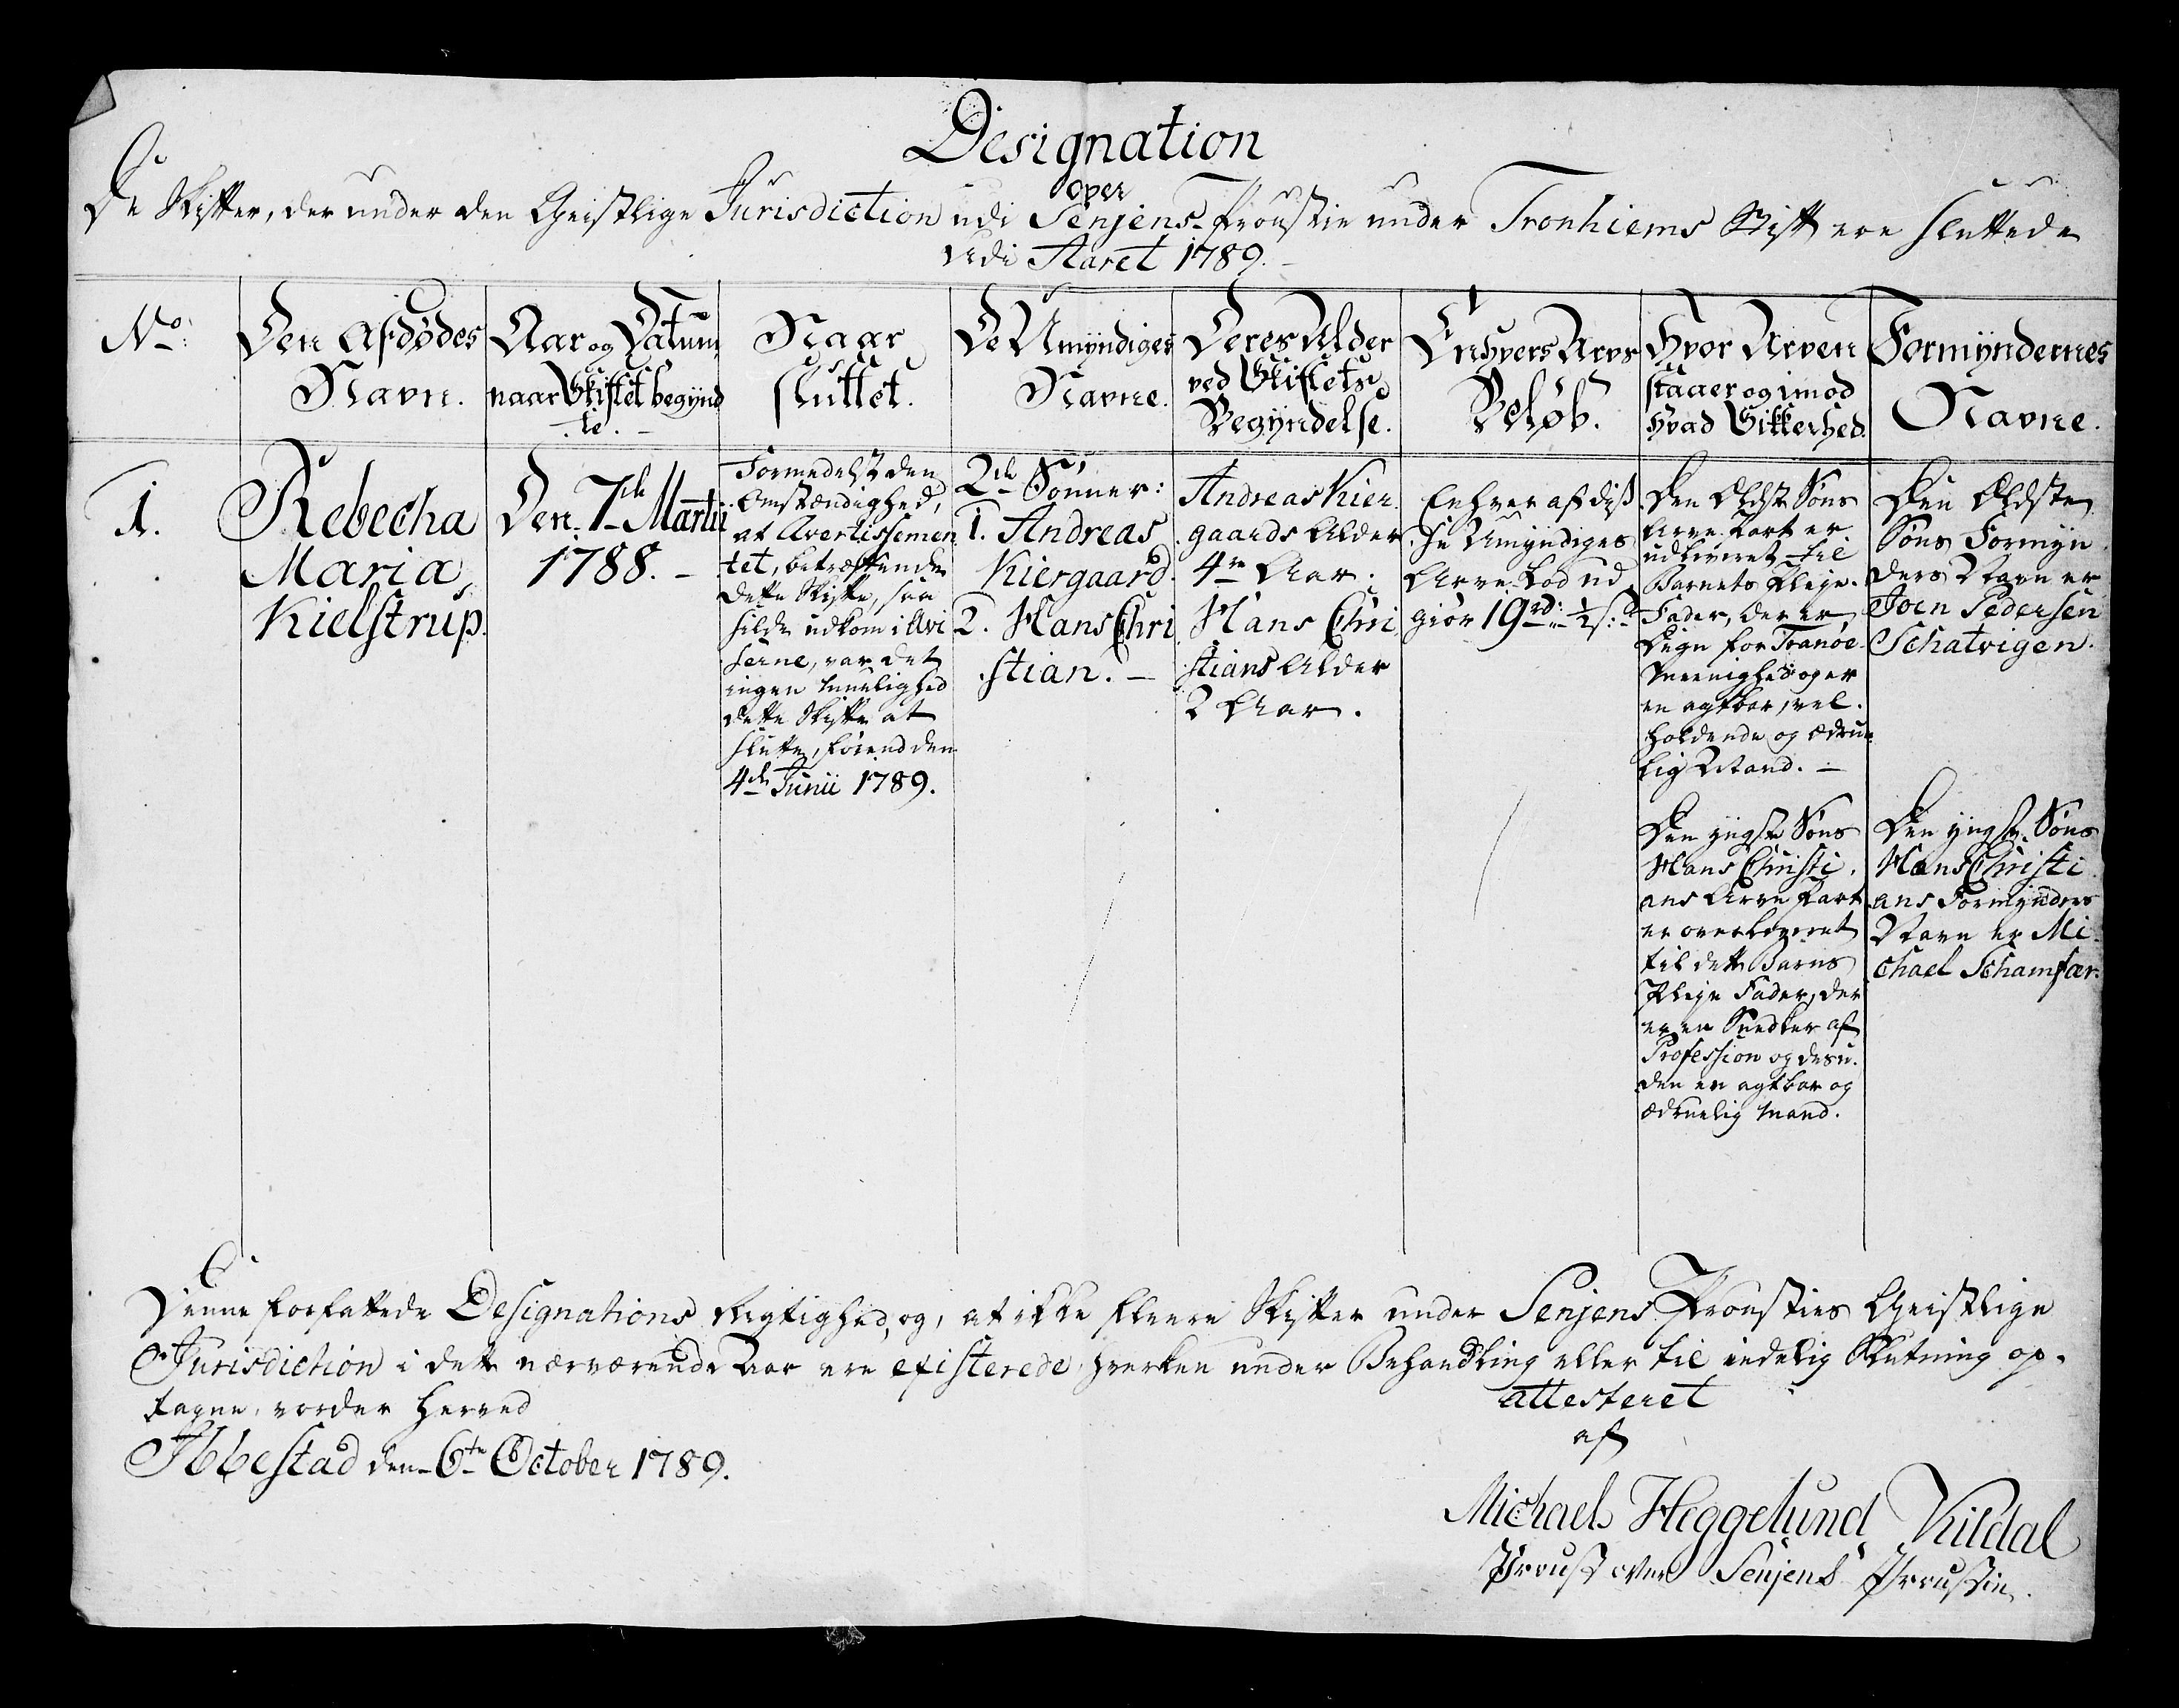 Designation
over
De Skifter, der under den Geistlige Jurisdiction udi Senjens Proustie under Tronhiems Stift ere sluttede
udi Aaret 1789.
No:
Den Afdødes
Navn.
Aar og Datum
naar Skiftet begynd
te.
Naar
sluttet.
De Umyndiges
Navne.
Deres Alder
ved Skiftets
Begyndelse.
Enhvers Arvs
Beløb.
Hvor Arven
staaer og imod
hvad Sikkerhed.
Formyndernes
Navne.
1.
Rebecha
Maria
Kielstrup.
Den 7de Martii
1788.
Formedelst den
Omstændighed,
at Avertissemen
tet, betreffende
dette Skifte, saa
silde udkom i Avi
serne, var det
ingen muelighed
dette Skifte at
slutte, førend den
4de Junii 1789.
2de Sønner:
1. Andreas
Kiergaard.
2. Hans Chri
stian.
Andreas Kier
gaards Alder
4re Aar.
Hans Chri
stians Alder
2 Aar.
Enhver af diß
se Umyndiges
Arve Lod ud
giør 19 rd: ½ s:
Den Eldste Søns
Arve Part er
udleveret til
Barnets Pleje
Fader, der er
Degn for Tranøe
Menighed og er
en agtbar, vel
holdende og ædrue
lig Mand.
Den yngste Søns
Hans Christi
ans Arve Part
er overleveret
til dette Barns
Pleje Fader, der
er en Snedker af
Profession og desu
den en agtbar og
ædruelig Mand.
Den Eldste
Søns Formyn
ders Navn er
Joen Pedersen
Schatvigen.
Den yngste Søns
Hans Christi
ans Formynders
Navn er Mi
chael Schamfær.
Denne forfattede Designations Rigtighed, og, at ikke fleere Skifter under Senjens Prousties Geistlige
Jurisdiction i dette nærværende Aar ere existerede, hverken under Behandling eller til endelig Slutning op-
tagne, vorder herved
attesteret
af
Ibbestad den 6te October 1789.
Michael Heggelund Kildal
Proust over Senjens Proustie.